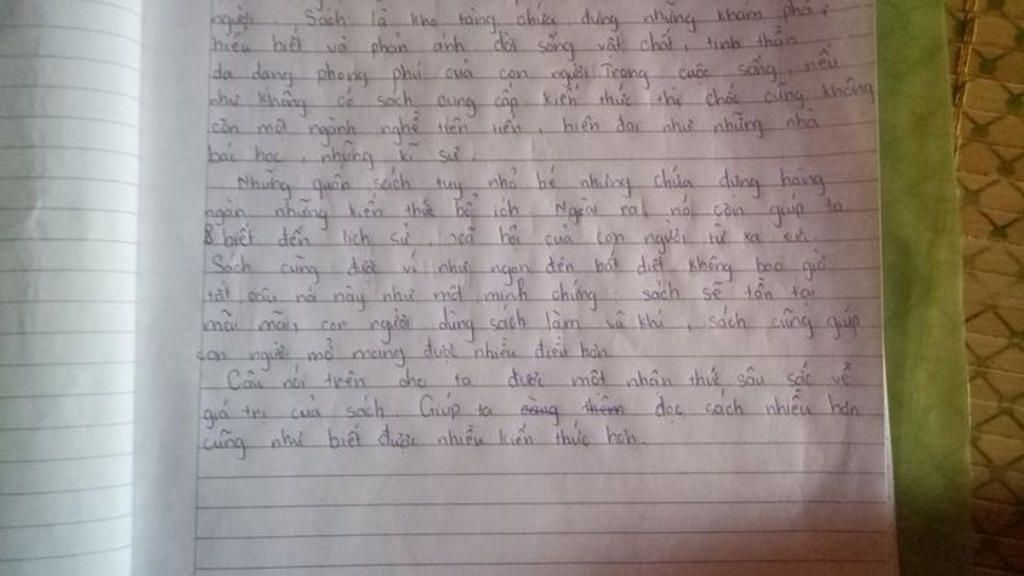 người. Sách là kho tàng chứa đựng những khám phá,
hiểu biết và phản ánh đời sống vật chất, tinh thần
đa dạng phong phú của con người. Trong cuộc sống, nếu
như không có sách cung cấp kiến thức thì chắc cũng không
còn một ngành nghề tiên tiến, hiện đại như những nhà
bác học, những kĩ sư.
Những quấn sách tuy nhỏ bé nhưng chứa đựng hàng
ngàn những kiến thức bổ ích. Ngoài ra, nó còn giúp ta
biết đến lịch sử, xã hội của con người từ xa xưa.
Sách cũng được ví như ngọn đèn bất diệt không bao giờ
tắt câu nói này như một minh chứng: sách sẽ tồn tại
mãi mãi, con người dùng sách làm vũ khí, sách cũng giúp
con người mở mang được nhiều điều hơn.
Câu nói trên cho ta được một nhận thức sâu sắc về
giá trị của sách. Giúp ta đọc sách nhiều hơn
cũng như biết được nhiều kiến thức hơn.